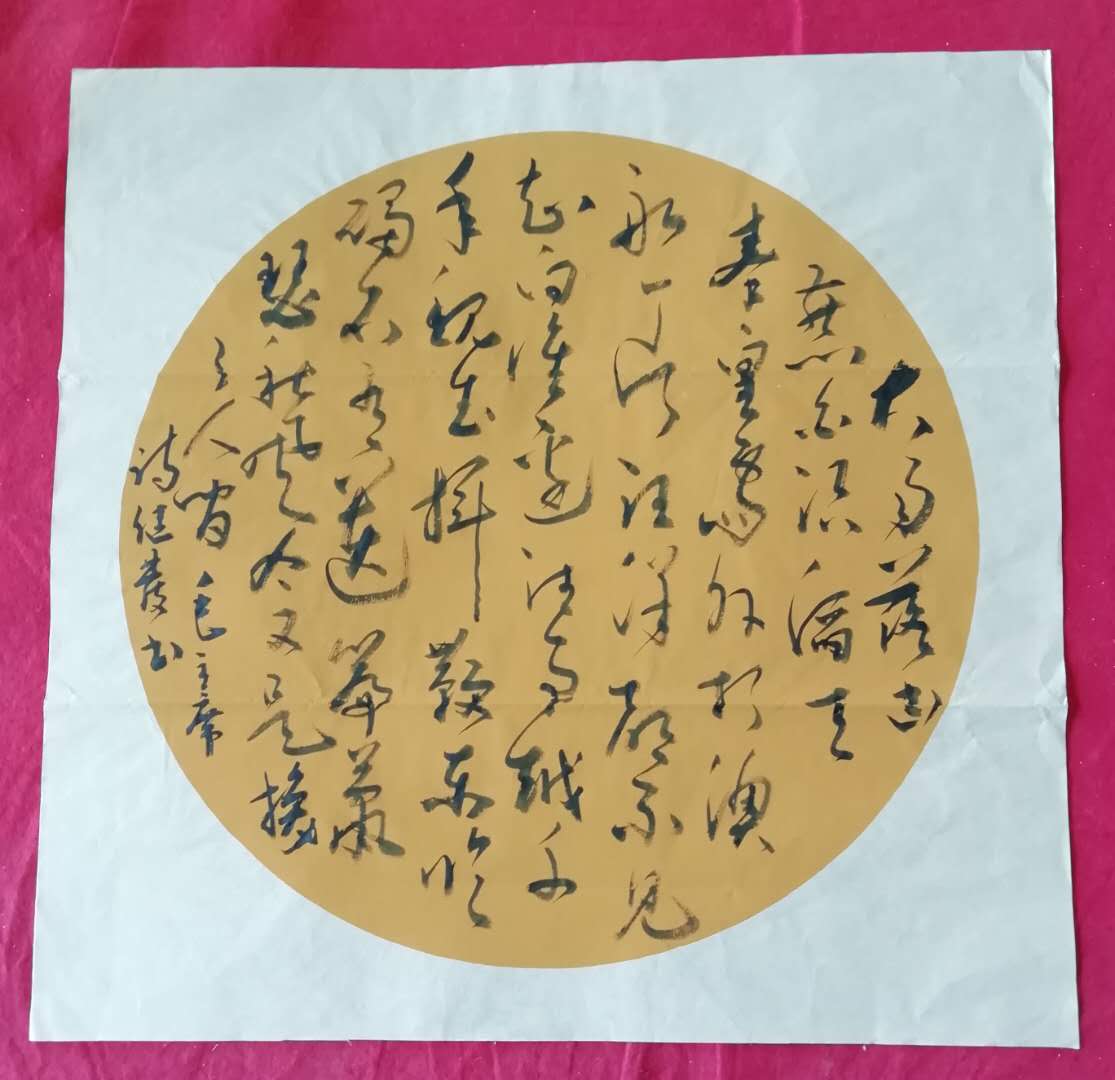 大雨落幽
燕白浪滔天
秦皇岛外打渔
船一片汪洋都不见
知向谁边往事越千
年魏武挥鞭东临
碣石有遗篇萧
瑟秋风今又是换
了人间 毛主席
诗 书